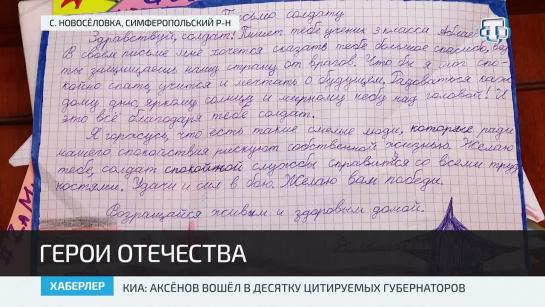 С. НОВОСЁЛОВКА, СИМФЕРОПОЛЬСКИЙ Р-Н
Письмо солдату
Здравствуй, солдат! Пишет тебе ученик 3 класса
В своём письме мне хочется сказать тебе большое спасибо,
ты защищаешь нашу страну от врагов. Что бы я мог спо-
койно спать, учится и мечтать о будущем. Радоваться каж-
дому дню, яркому солнцу и мирному небу над головой! И
это всё благодаря тебе солдат.
Я горжусь, что есть такие смелые люди, которые ради
нашего спокойствия рискуют собственной жизнью. Желаю
тебе, солдат спокойной службы справится со всеми труд-
ностями. Удачи и сил в бою. Желаю вам победы.
Возращайся живым и здоровым домой.
ГЕРОИ ОТЕЧЕСТВА
ХАБЕРЛЕР
КИА: АКСЁНОВ ВОШЁЛ В ДЕСЯТКУ ЦИТИРУЕМЫХ ГУБЕРНАТОРОВ